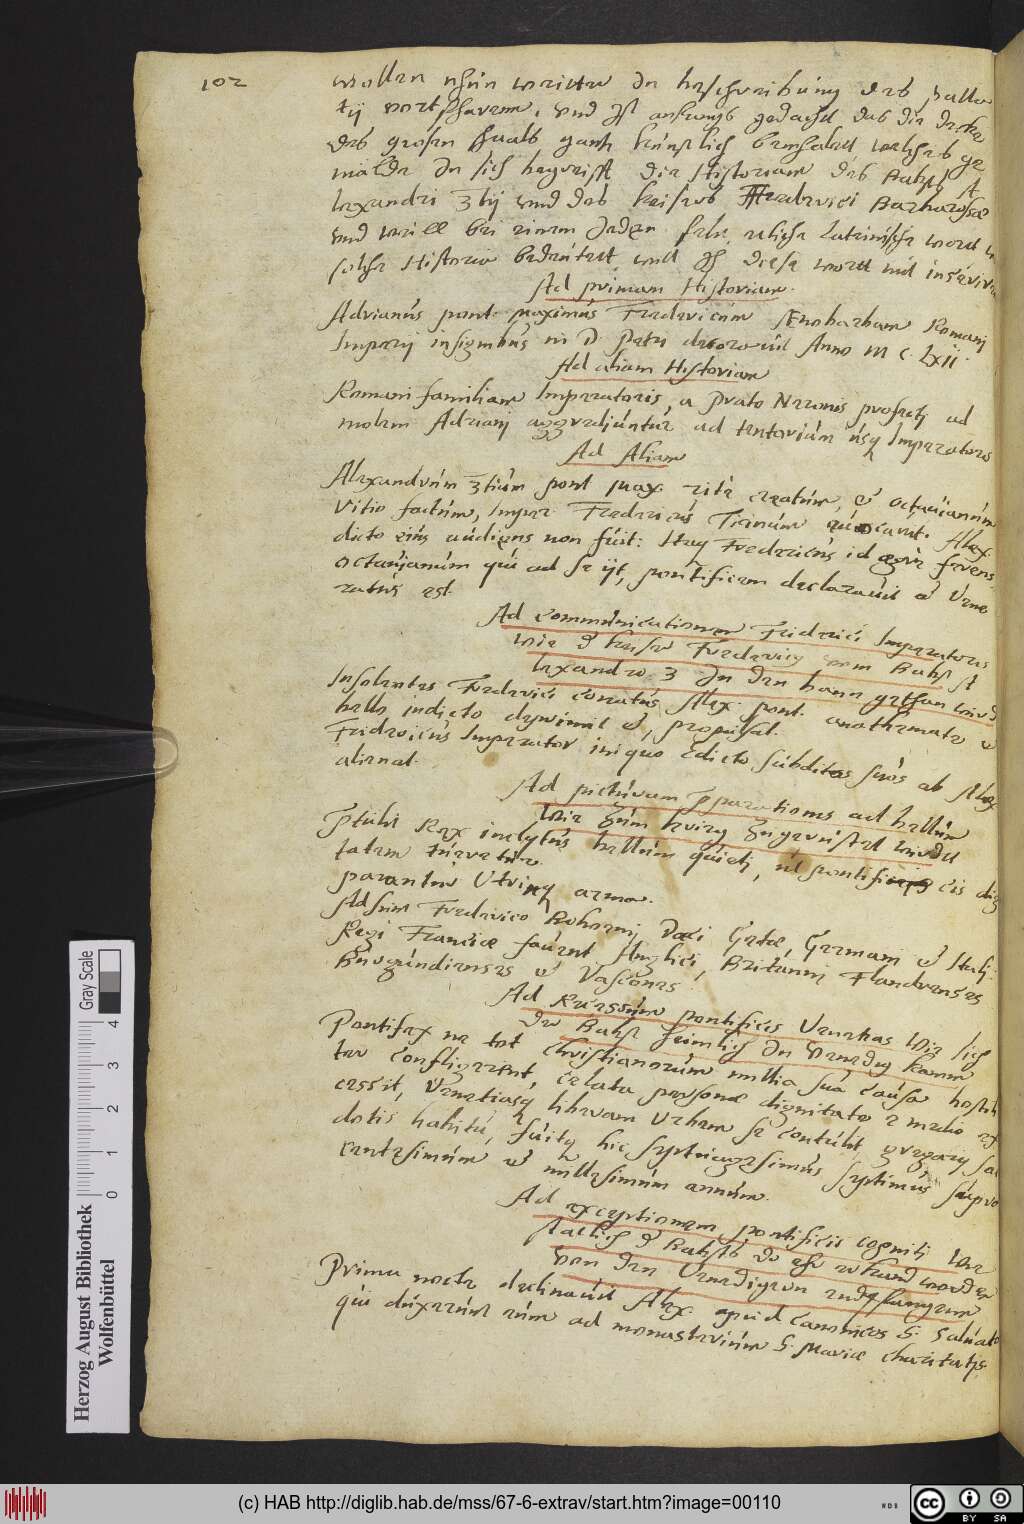 102
wollen nhun weitter in beschreibung des pallas
tij vortfharenn, und ist anfengs gedacht das die decke
des grosen Saals gantz künstlich bemhalett welches ge
mälde in sich begreifft die Historiam des Babsts A
lexandri 3tij und des keisers Frederici Barbarossæ
und weill bei einem jeden felt etliche Lateinische wortt
solche Historie bedeutett und
Ad primam Historiam.
Adrianus pont. maximus Fredericum Ænobarbum Romanj
Imperij insignibus in D. Petri decoravit Anno M C. LXii.
Ad aliam Historiam
Romani familiam Imperatoris, a prato Neronis profectj ad
molem Adrianj aggrediuntur, ad tentorium usq Imperatoris
Ad Aliam
Alexandrum 3tium pont max. ritè creatum, et octauianum
vitio factum, Imper Fredericus Ticinum euocavit. Alex.
dicto eius audiens non fuit: Itaq Fredericus id ægrè ferens
octauianum qui ad se ijt, pontificem declarauit et vene
ratus est.
Ad communicationem Friderici Imperatoris
wie d keiser Fredericg vom Babst A
lexandro 3 in den bann gethan wird
Insolentes Frederici conatus Alex. pont. anathemate et
bello indicto dijminuit et, propulsat.
Fridericus Imperator iniquo edicto subditos suos ab Alex
alienat.
Ad picturam pparationis ad bellum
wie zum krieg zugerustet wirdtt
Ptulit Rex inclytus bellum quieti, ut pontificis dig
tatem tueretur.
parantur Utrinq arma.
Adsunt Frederico Bohemj Daci Getæ, Germani et Italj:
Regi Franciæ fauent Anglici, Britannj Flandrenses
Burgundienses et Vascones.
Ad Recessum pontificis Venetias wie sich
der Babst heimlich in Venedig kamm
Pontifex ne tot christianorum millia sua causa hostili
ter confligerent, celata personæ dignitate e medio ex
cessit, Venetiasq liberam Urbem se contulit gregarij sa
dotis habitu, fuitq hic septuagesimus septimus supra
centesimum et millesimum annum.
Ad exceptionem pontificis cogniti wie
statlich d Babst do ehr erkand worden
von den Venedigern entpfangenn
Prima nocte declinauit Alex. apud canonicos S. Saluato
qui duxerunt eum ad monasterium S. Mariæ charitatis
Herzog August Bibliothek
Wolfenbüttel
0 1 2 3 4
Gray Scale
(c) HAB http://diglib.hab.de/mss/67-6-extrav/start.htm?image=00110
WDB
cc
BY SA